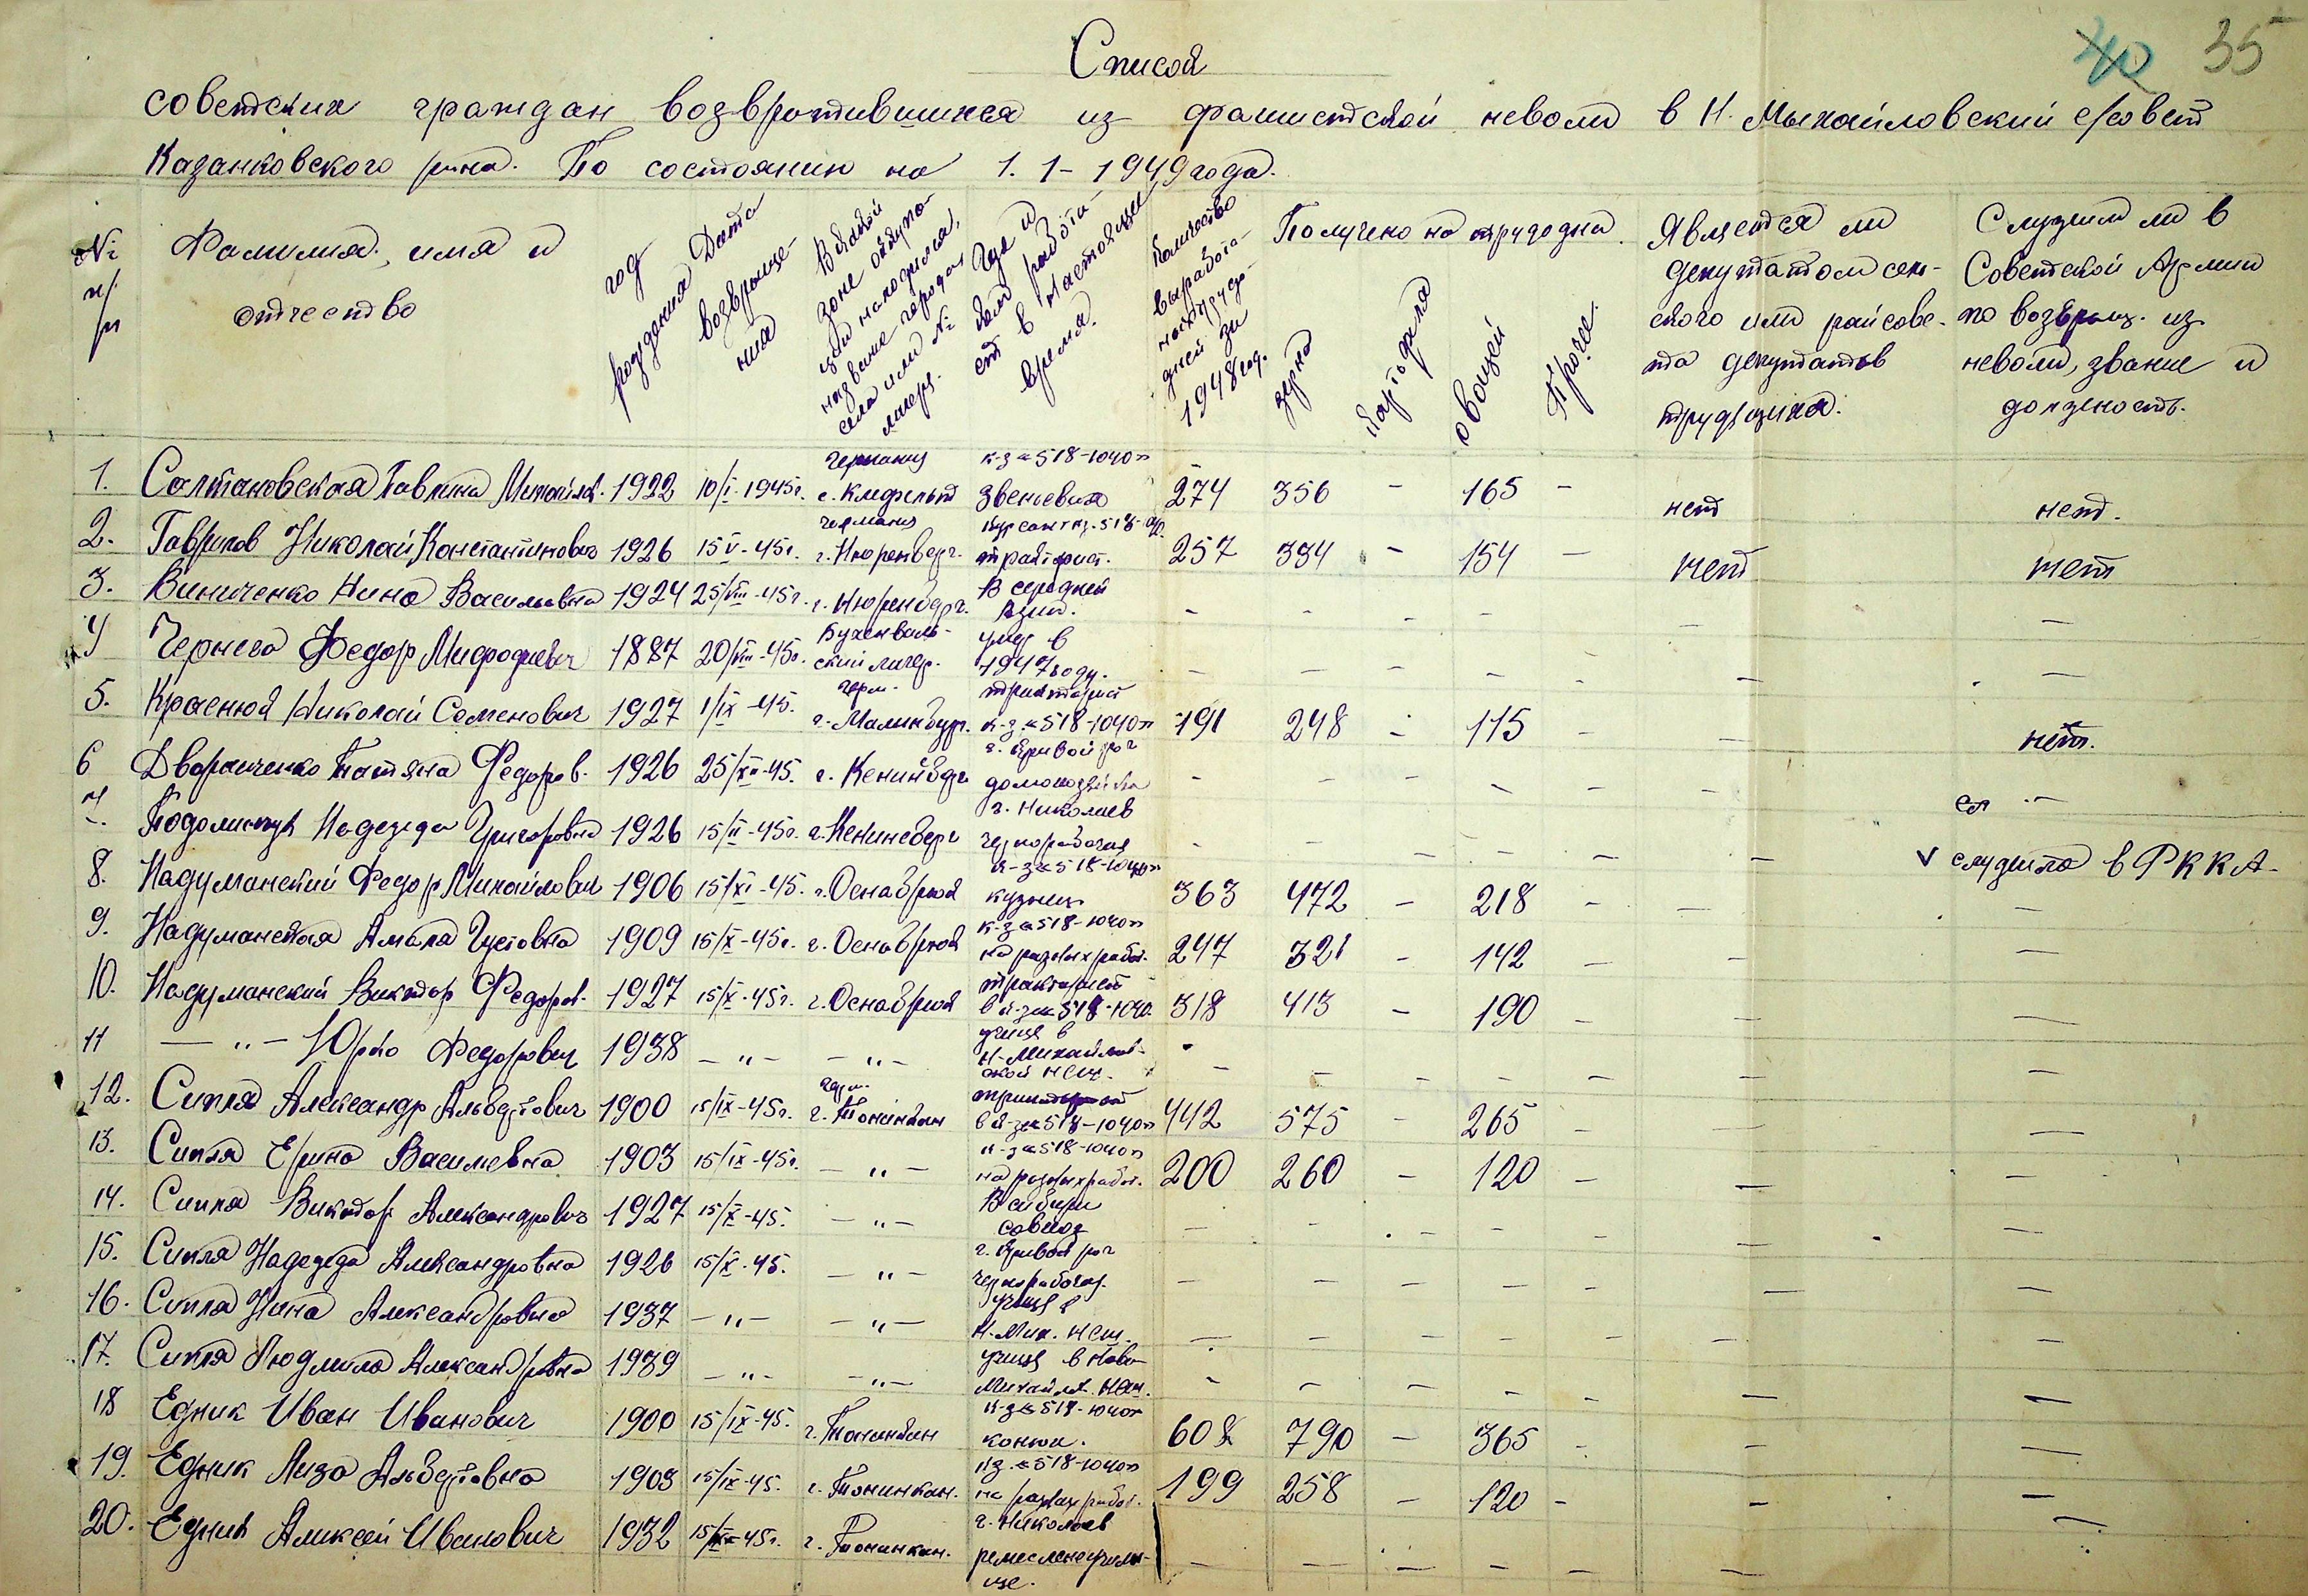 40 35
Список
советских граждан возвротившихся из фашистской неволи в Н. Мыхайловский с/совет
Казанковского р-на. По состоянию на 1. 1 - 1949 года.
№ п/п
Фамилия, имя и отчество
год рождения
Дата возвращения
В какой зоне оккупации находился, название города, села или № лагеря.
Где и кем работает в настоящее время.
Количество выработаных трудодней за 1948 год.
Получено на трудодни.
зерна
картофеля
овощей
Прочее.
Является ли депутатом сельского или райсовета депутатов трудящихся.
Служил ли в Советской Армии по возвращ. из неволи, звание и должность.
1. Салтановская Павлина Михайлов. 1922 10/I-1945г. Германия с. Клефельт к-з "518-1040" звеньевая 274 356 - 165 - нет нет.
2. Гаврилов Николай Константинович 1926 15 V-45г. Германия г. Нюренберг. тракторист. 257 334 - 154 - нет нет
3. Виниченко Нина Васильевна 1924 25/VIII-45г. г. Нюренберг. В середней Азии. - - - - - -
4 Чернега Федор Мифодиевич 1887 20/VIII-45г. Бухенвальский лагер. умер в 1947 году. - - - - - - -
5. Краснюк Николай Семенович 1927 1/IX-45. Герм. г. Малинбург. тракторист к-з "518-1040" 191 248 - 115 - - нет.
6 Дворниченко Татяна Федоров. 1926 25/XII-45. г. Кенинберг г. Кривой рог домохозяйка - - - - - -
7. Подолинчук Надежда Григоровна 1926 15/II-45г. г. Кенинсберг г. Николаев чернорабочая - - - - - - v служила в РККА-
8. Надуманский Федор Михайлович 1906 15/XI-45. г. Оснабрюк к-з "518-1040" кузнец 363 472 - 218 - - -
9. Надуманская Амаля Густовна 1909 15/X-45г. г. Оснабрюк к-з "518-1040" на разных работ. 247 321 - 142 - - -
10. Надуманский Виктор Федоров. 1927 15/X-45г. г. Оснабрюк тракторист в к-зе "518-1040. 318 413 - 190 - - -
11 — " — Юрко Федорович 1938 - " - - " - учится в Н-Михайловской неш. - - - - - - -
12. Сипля Александр Альбертович 1900 15/IX-45г. Герм. г. Тонинкан в к-зе "518-1040" 442 575 - 265 - - -
13. Сипля Ерина Василевна 1903 15/IX-45г. - " - к-з "518-1040" на разных работ. 200 260 - 120 - - -
14. Сипля Виктор Александрович 1927 15/X-45. - " - В сибири совхоз - - - - - - -
15. Сипля Надежда Александровна 1926 15/X-45. - " - г. Кривой рог чернорабочая. - - - - - - -
16. Сипля Нина Александровна 1937 - " - - " - учится в Н. Мих. неш. - - - - - - -
17. Сипля Людмила Александровна 1939 - " - - " - учится в Ново-Михайлов. неш. - - - - - - -
18 Едник Иван Иванович 1900 15/IX-45. г. Тонинкан к-з "518-1040" конюх. 608 790 - 365 - - -
19. Едник Лиза Альбертовна 1903 15/IX-45. г. Тонинкан. к-з "518-1040" на разных работ. 199 258 - 120 - - -
20. Едник Алексей Иванович 1932 15/IX-45г. г. Тонинкан. г. Николаев ремесленеучилище. - - - - - - -